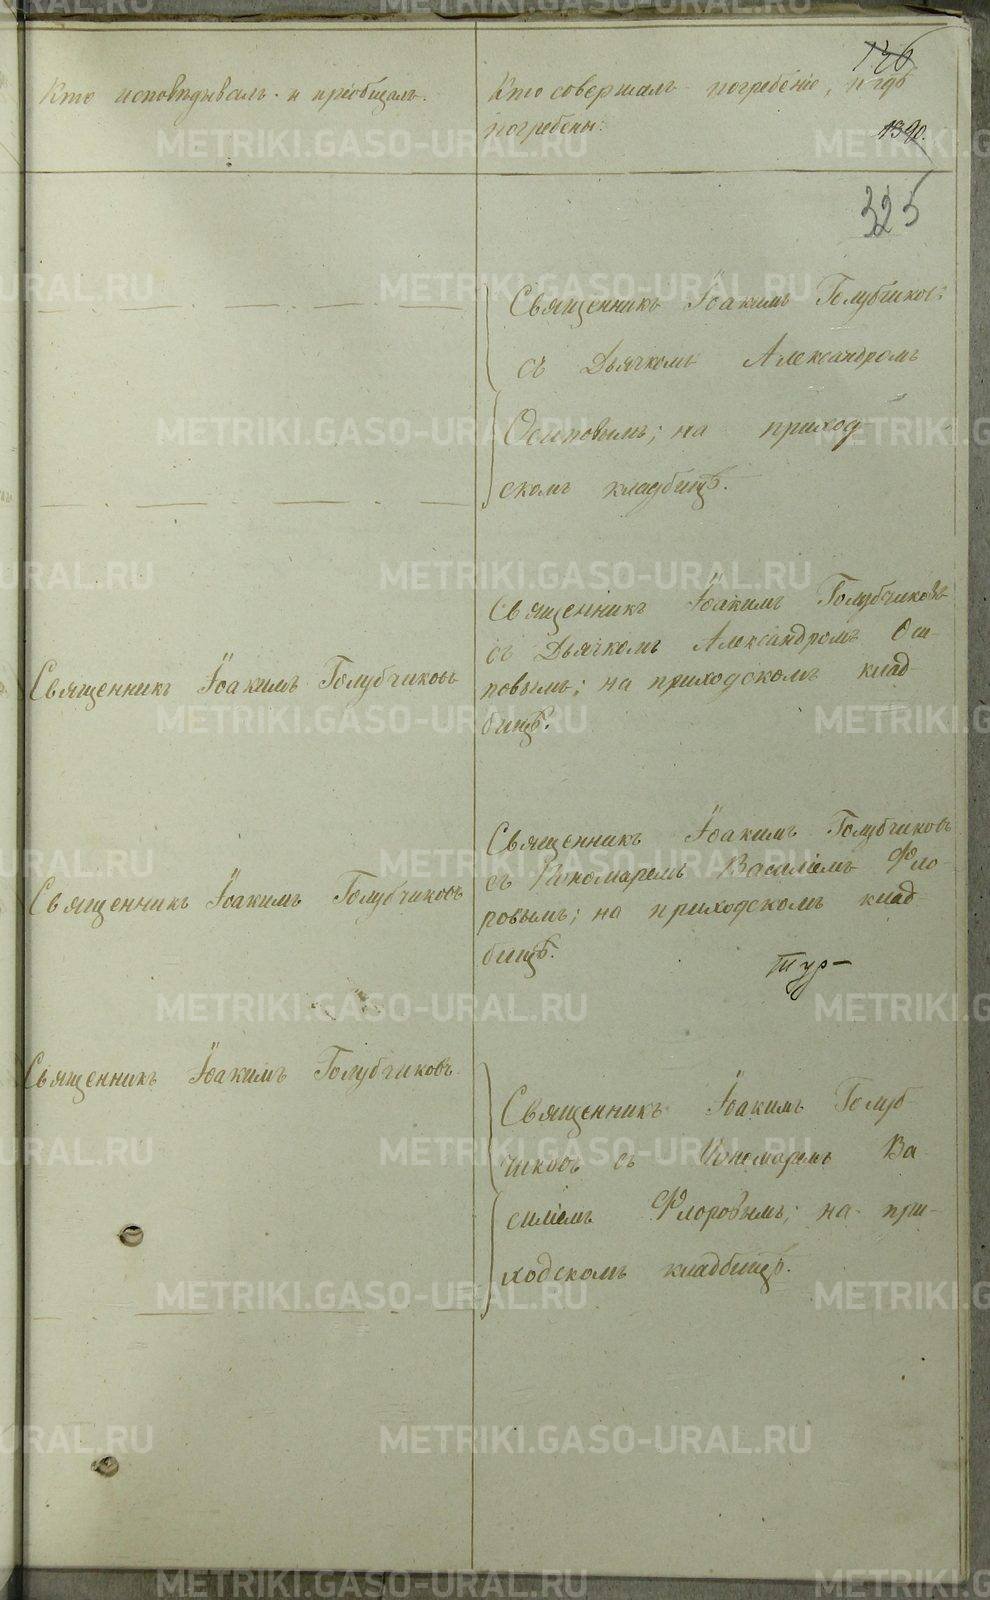 136
Кто исповѣдывалъ и пріобщалъ.
Кто совершалъ погребеніе, и гдѣ
погребены:
325
Священникъ Іоакимъ Голубчиковъ
съ Дьячкомъ Александромъ
Осиповымъ; на приход
скомъ кладбищѣ.
Священникъ Іоакимъ Голубчиковъ
Священникъ Іоакимъ Голубчиковъ
съ Дьячкомъ Александромъ Оси-
повымъ; на приходскомъ клад-
бищѣ.
Священникъ Іоакимъ Голубчиковъ
Священникъ Іоакимъ Голубчиковъ
съ Пономаремъ Василіемъ Фло-
ровымъ; на приходскомъ клад-
бищѣ.
Тур-
Священникъ Іоакимъ Голубчиковъ
Священникъ Іоакимъ Голуб-
чиковъ съ Пономаремъ Ва-
силіемъ Флоровымъ; на при-
ходскомъ кладбищѣ.
METRIKI.GASO-URAL.RU